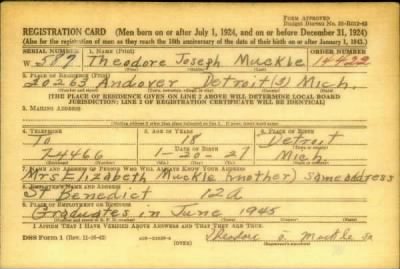 FORM APPROVED
REGISTRATION CARD (Men born on or after July 1, 1924, and on or before December 31, 1924)
(Also for the registration of men as they reach the 18th anniversary of the date of their birth on or after January 1, 1925.)
SERIAL NUMBER 1. NAME (Print) ORDER NUMBER
W 587 Theodore Joseph Muckle 14422
2. PLACE OF RESIDENCE (Print)
20263 Andover Detroit(3) Mich.
[THE PLACE OF RESIDENCE GIVEN ON LINE 2 ABOVE WILL DETERMINE LOCAL BOARD
JURISDICTION; LINE 2 OF REGISTRATION CERTIFICATE WILL BE IDENTICAL]
3. MAILING ADDRESS
4. TELEPHONE 5. AGE IN YEARS 6. PLACE OF BIRTH
To 18 Detroit
7-4466 1-20-27 Mich
7. NAME AND ADDRESS OF PERSON WHO WILL ALWAYS KNOW YOUR ADDRESS
Mrs Elizabeth Muckle (mother) same address
8. EMPLOYER'S NAME AND ADDRESS
St Benedict 12A
9. PLACE OF EMPLOYMENT OR BUSINESS
Graduates in June 1945
I AFFIRM THAT I HAVE VERIFIED ABOVE ANSWERS AND THAT THEY ARE TRUE.
DSS Form 1 (OVER) Theodore J. Muckle Jr